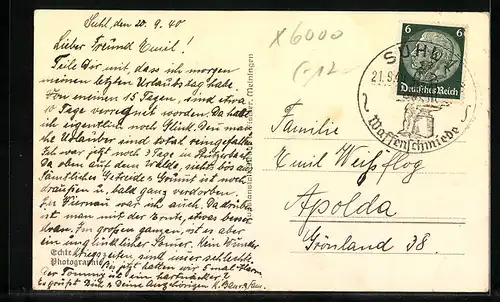 Suhl, den 20. 9. 40
Lieber Freund Emil!
Teile Dir mit, dass ich morgen
meinen letzten Urlaubstag habe.
Von meinen 15 Tagen, sind etwa
10 Tage verregnet worden. Da habe
ich eigentlich noch Glück. Den
Urlauber sind total reingefallen.
Ich war jetzt noch 3 Tage in
Da oben auf dem Walde, sieht's bös aus
Sämtliches Getreide & Grumt ist noch
draußen u. bald ganz verdorben.
In war ich auch. Da drüben
ist man mit der Ernte, etwas besser
dran. Im großen ganzen, ist es aber
ein unglücklicher Sommer. Kein Wunder
Kriegszeiten sind immer schlecht.
Bis jetzt hatten wir 5 mal Alarm
Der Tommy ist ein hartnäckiger
Es grüßt Dich & Deine Angehörigen K.
Echte
Photographie
Meiningen
X6000
SUHL
21.9.4
Waffenschmiede
6 6
Deutsches Reich
Familie
Emil Weißflog
Apolda
Grönland 38.